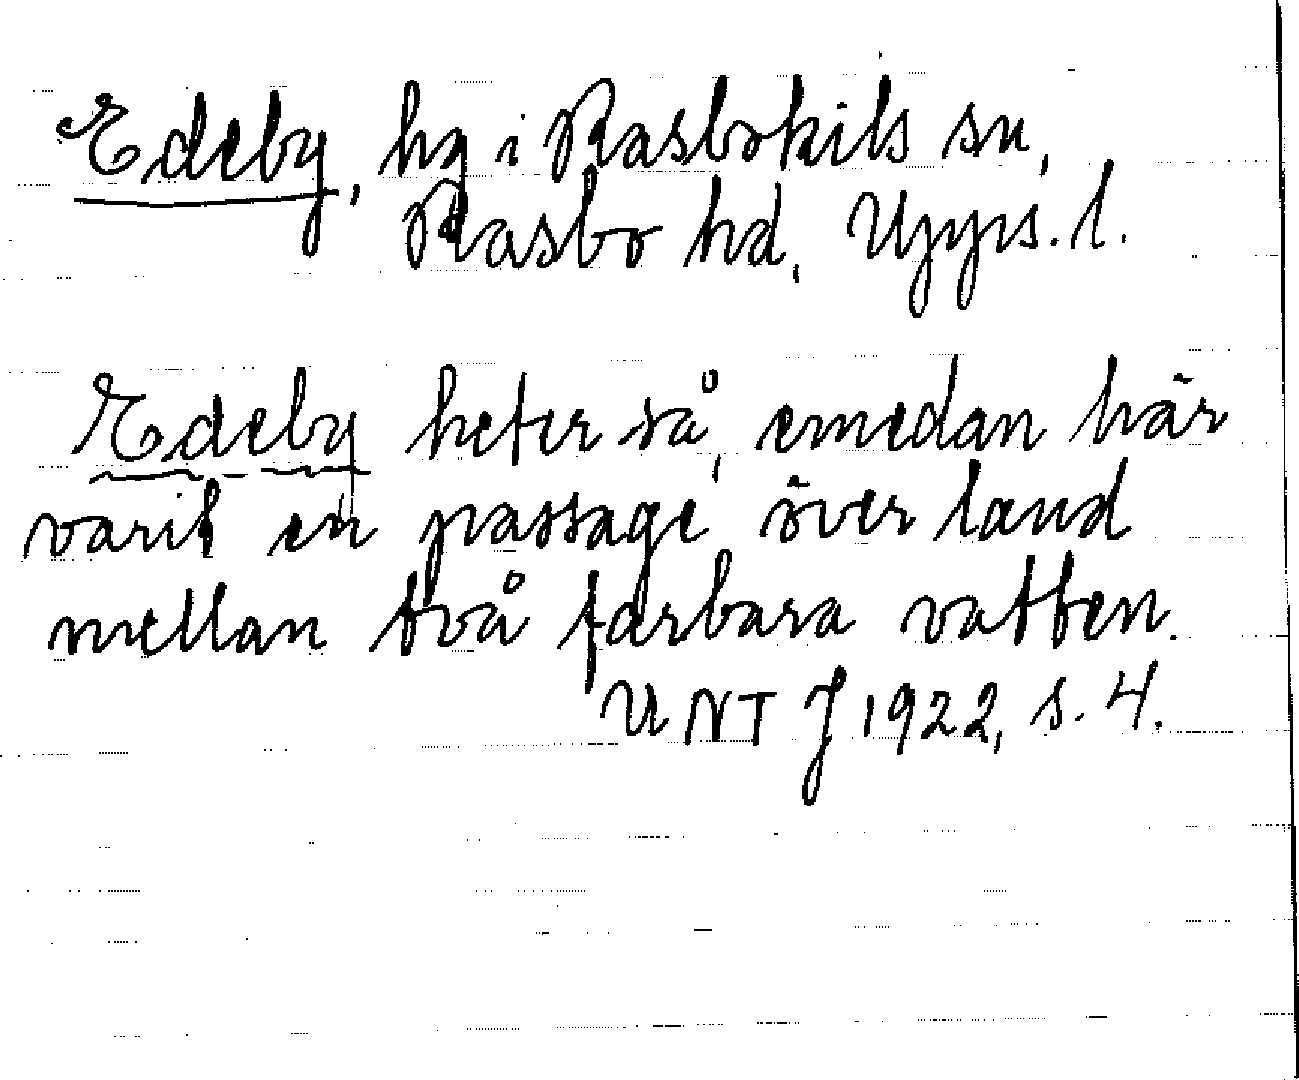 Edeby, hg i Rasbokils sn,
Rasbo hd, Upps. l.
Edeby heter så, emedan här
varit en passage över land
mellan två farbara vatten.
UNT J 1922, s. 4.